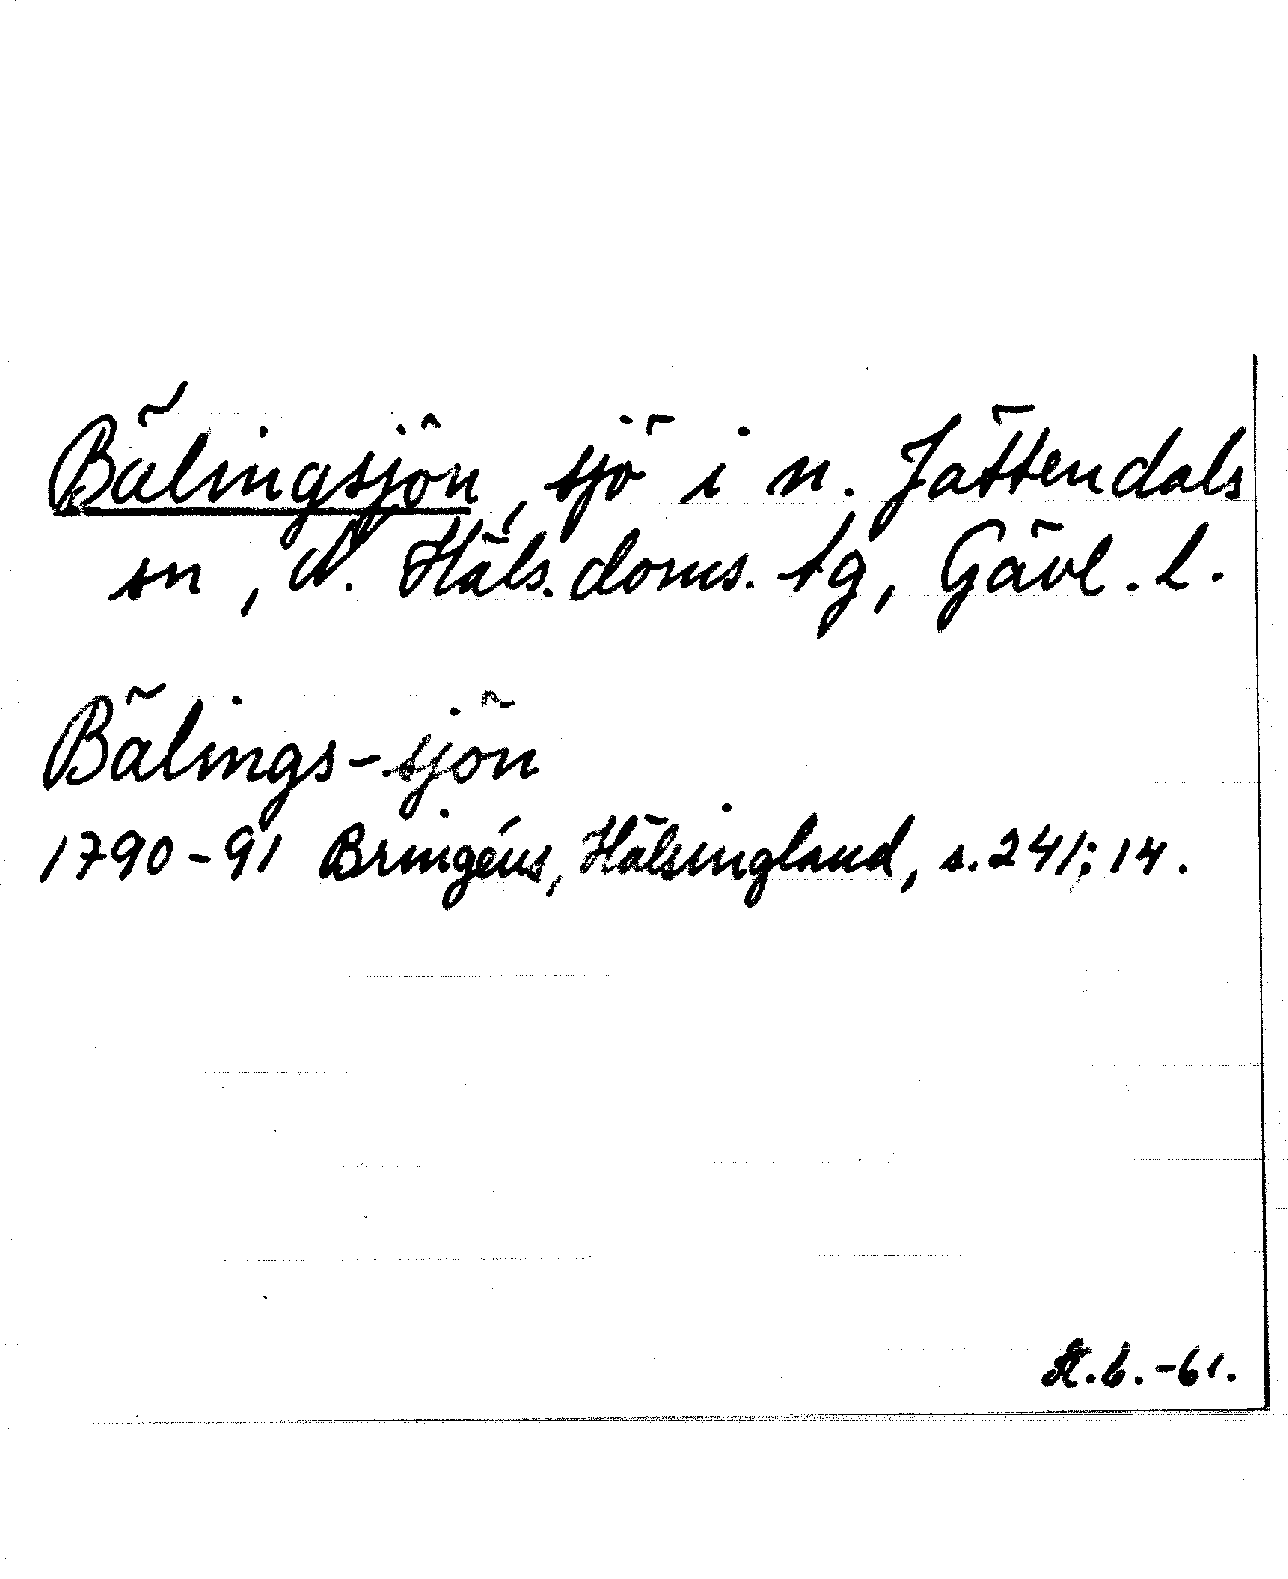 Bälingsjön, sjö i n. Jättendals
sn, N. Häls. doms. tg, Gävl. l.
Bälings-sjön
1790-91 Bringéus, Hälsingland, s. 241; 14.
-61.